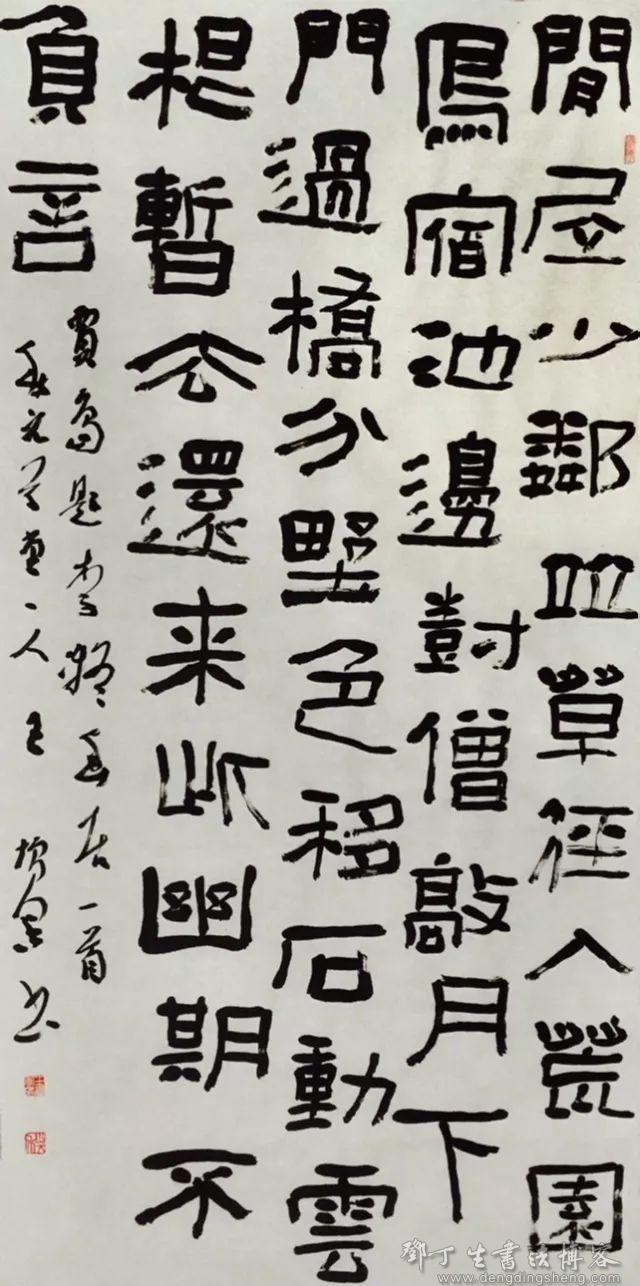 閒屋少鄰並草徑入荒園
鳥宿池邊對僧敲月下
門過橋分野色移石動雲
根暫去還来此幽期不
負言
賈島題李凝幽居一首
一人王
書
鄧丁生書法博客
www.dengdingsheng.com